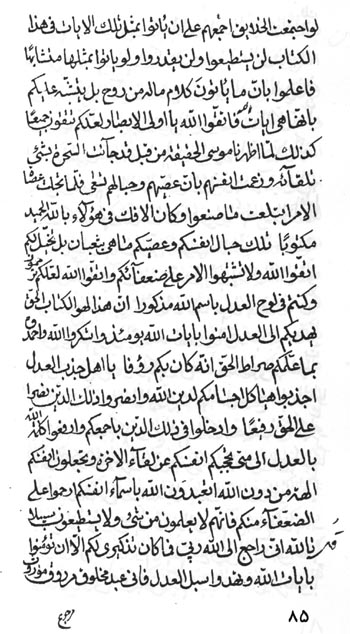 لو اجتمعت الخلايق اجمعهم على ان ياتوا بمثل تلك الايات فى هذا
الكتاب لن يستطيعوا ولن يقدروا ولو ياتوا بمثلها متشابها
فاعلموا بان ما ياتون كلام ماله من روح بل يشتبه عليكم
بانها هى ايات فاتقوا الله يا اولى الابصار لعلكم تتقون جميعا
كذلك لما اظهرنا موسى الحقيقة من قبل قد جائت السحرة بشئ
تلقائه وزعمت انفسهم بان عصيهم وحبالهم تسعى فلما جائت عصا
الامر ابتلعت ما صنعوا وكان الافك فى هؤلاء بالله الحميد
مكتوبا تلك حبال انفسكم وعصيكم ما هى بثعبان بل تخيل لكم
اتقوا الله ولا تشبهوا الامر على ضعفائكم واتقوا الله لعلكم
وكنتم فى لوح العدل باسم الله مذكورا ان هذا لهو الكتاب الحق
يهديكم الى العدل امنوا بايات الله يومئذ واشكروا الله واحمدوه
بما علمكم صراط الحق انه كان بكم رؤفا يا اهل جذب العدل
اجذبوا هياكل اجسامكم لدين الله وانصروا ذلك الدين نصرا
على الحق رفيعا وادخلوا فى ذلك الدين باجمعكم وارفعوا كلمة الله
بالعدل الى متى تحجبكم انفسكم عن لقاء الاخرى وتجعلون انفسكم
الهة من دون الله اتعبدون الله باسماء انفسكم ارحموا على
الضعفاء منكم فانهم لا يعلمون من شئ ولا يستطيعون سبيلا
قل تالله انى راجع الى الله ربى فما كان تذكيرى لكم الا ان تؤمنوا
بايات الله وتهتدوا سبل العدل فانى عبد مخلوق مرزوق
٨٥